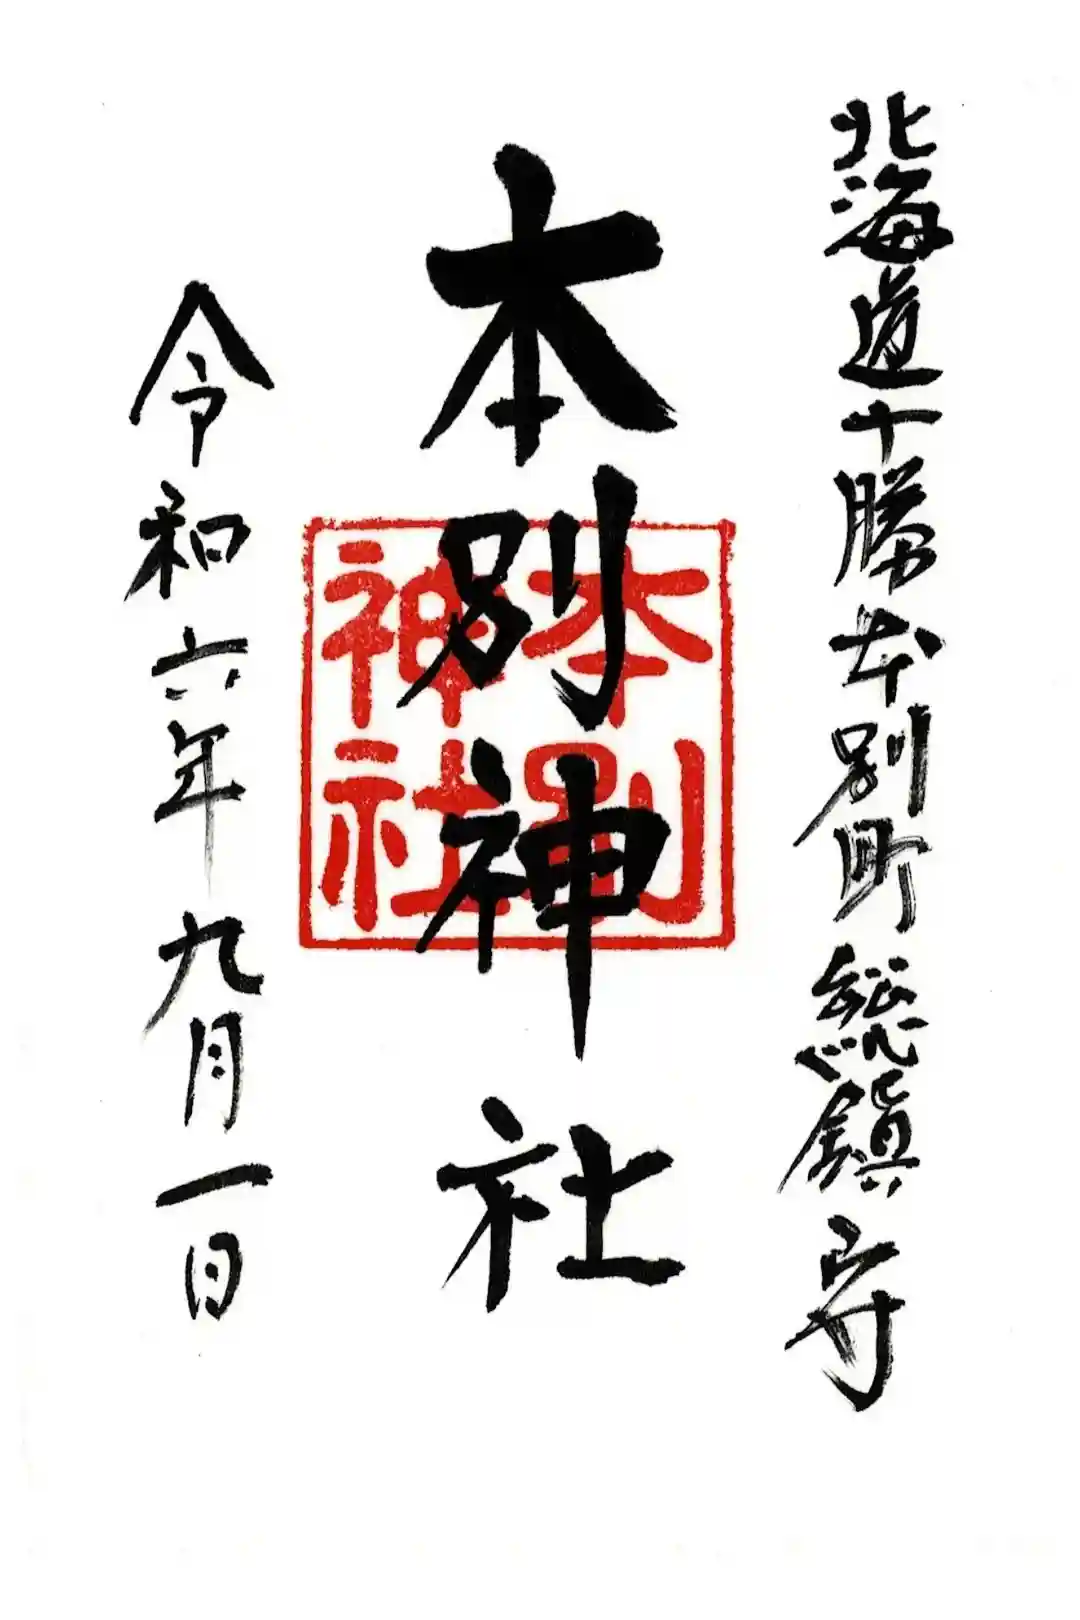 北海道十勝本別町総鎮守
本別神社
本別
神社
令和六年九月一日